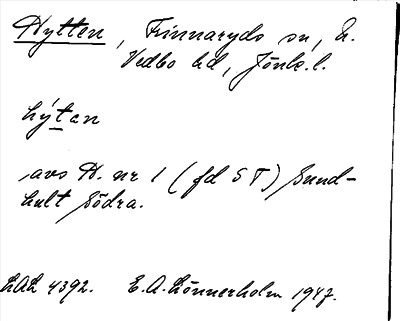 Hytten, Finnaryds sn, N.
Vedbo hd, Jönk. l.
hýtan
avs H. nr 1 (fd ST) Sund-
hult Södra.
LAL 4392. E.A. Lönnerholm 1947.